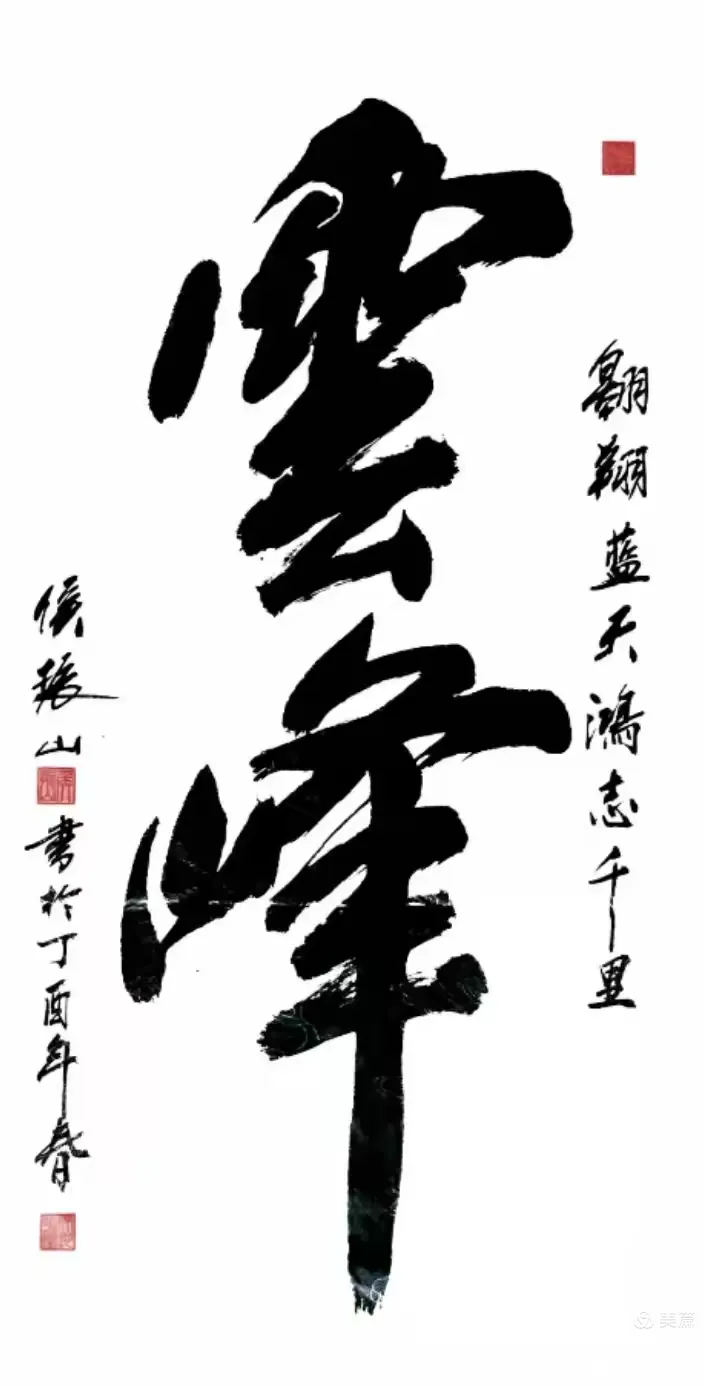 翱翔蓝天鸿志千里
雲峰
侯振山
書於丁酉年春
美篇